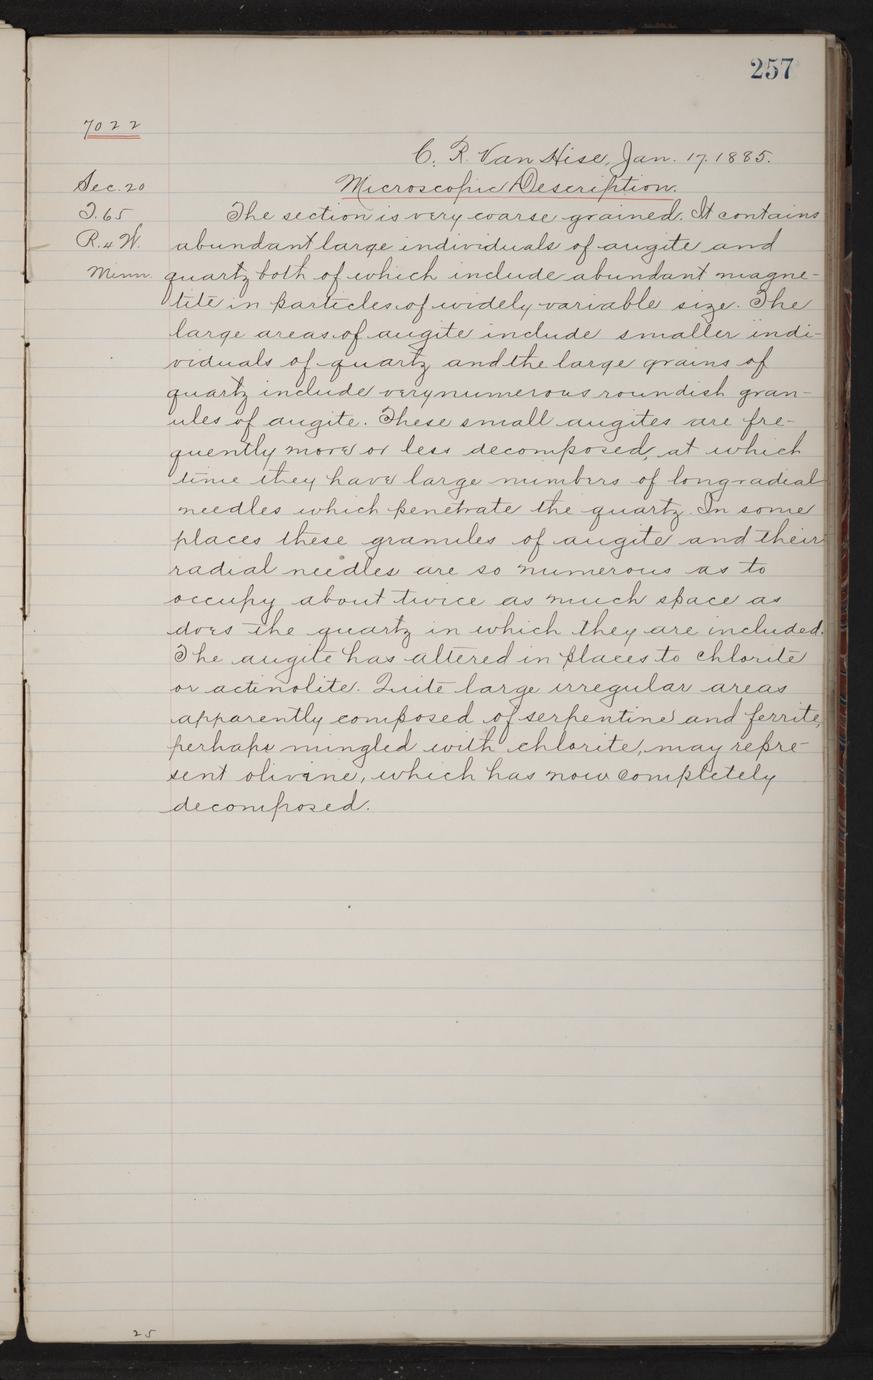 257
7022
C. R. Van Hise, Jan. 17. 1885.
Sec. 20
Microscopic Description.
T. 65
The section is very coarse grained. It contains
R. 4 W.
abundant large individuals of augite and
Minn.
quartz both of which include abundant magne-
tite in particles of widely variable size. The
large areas of augite include smaller indi-
viduals of quartz and the large grains of
quartz include very numerous roundish gran-
ules of augite. These small augites are fre-
quently more or less decomposed, at which
time they have large numbers of long radial
needles which penetrate the quartz. In some
places these granules of augite and their
radial needles are so numerous as to
occupy about twice as much space as
does the quartz in which they are included.
The augite has altered in places to chlorite
or actinolite. Quite large irregular areas
apparently composed of serpentine and ferrite,
perhaps mingled with chlorite, may repre-
sent olivine, which has now completely
decomposed.
25